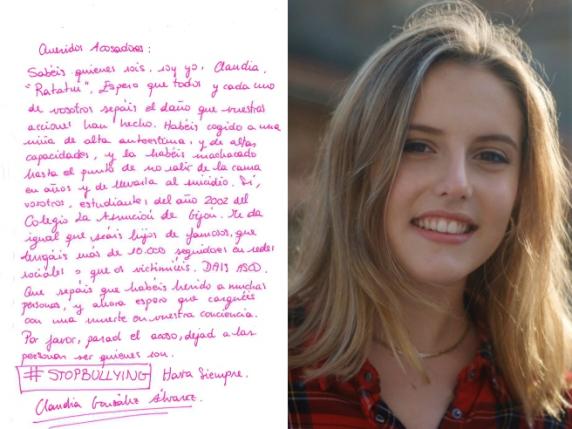 Queridos Acosadores:
Sabéis quienes sois, soy yo, Claudia,
"Ratatui", Espero que todos y cada uno
de vosotros sepáis el daño que vuestras
acciones han hecho. Habéis cogido a una
niña de alta autoestima, y de altas
capacidades, y la habéis machacado
hasta el punto de no salir de la cama
en años y de llevarla al suicidio. Sí,
vosotros, estudiantes del año 2002 del
Colegio La Asunción de Gijón. Me da
igual que seáis hijos de famosos, que
tengáis más de 10.000 seguidores en redes
sociales o que os victimicéis. DAIS ASCO.
Que sepáis que habéis herido a muchas
personas, y ahora espero que carguéis
con una muerte en vuestra conciencia.
Por favor, parad el acoso, dejad a las
personas ser quienes son.
#STOPBULLYING Hasta Siempre.
Claudia González Álvarez.